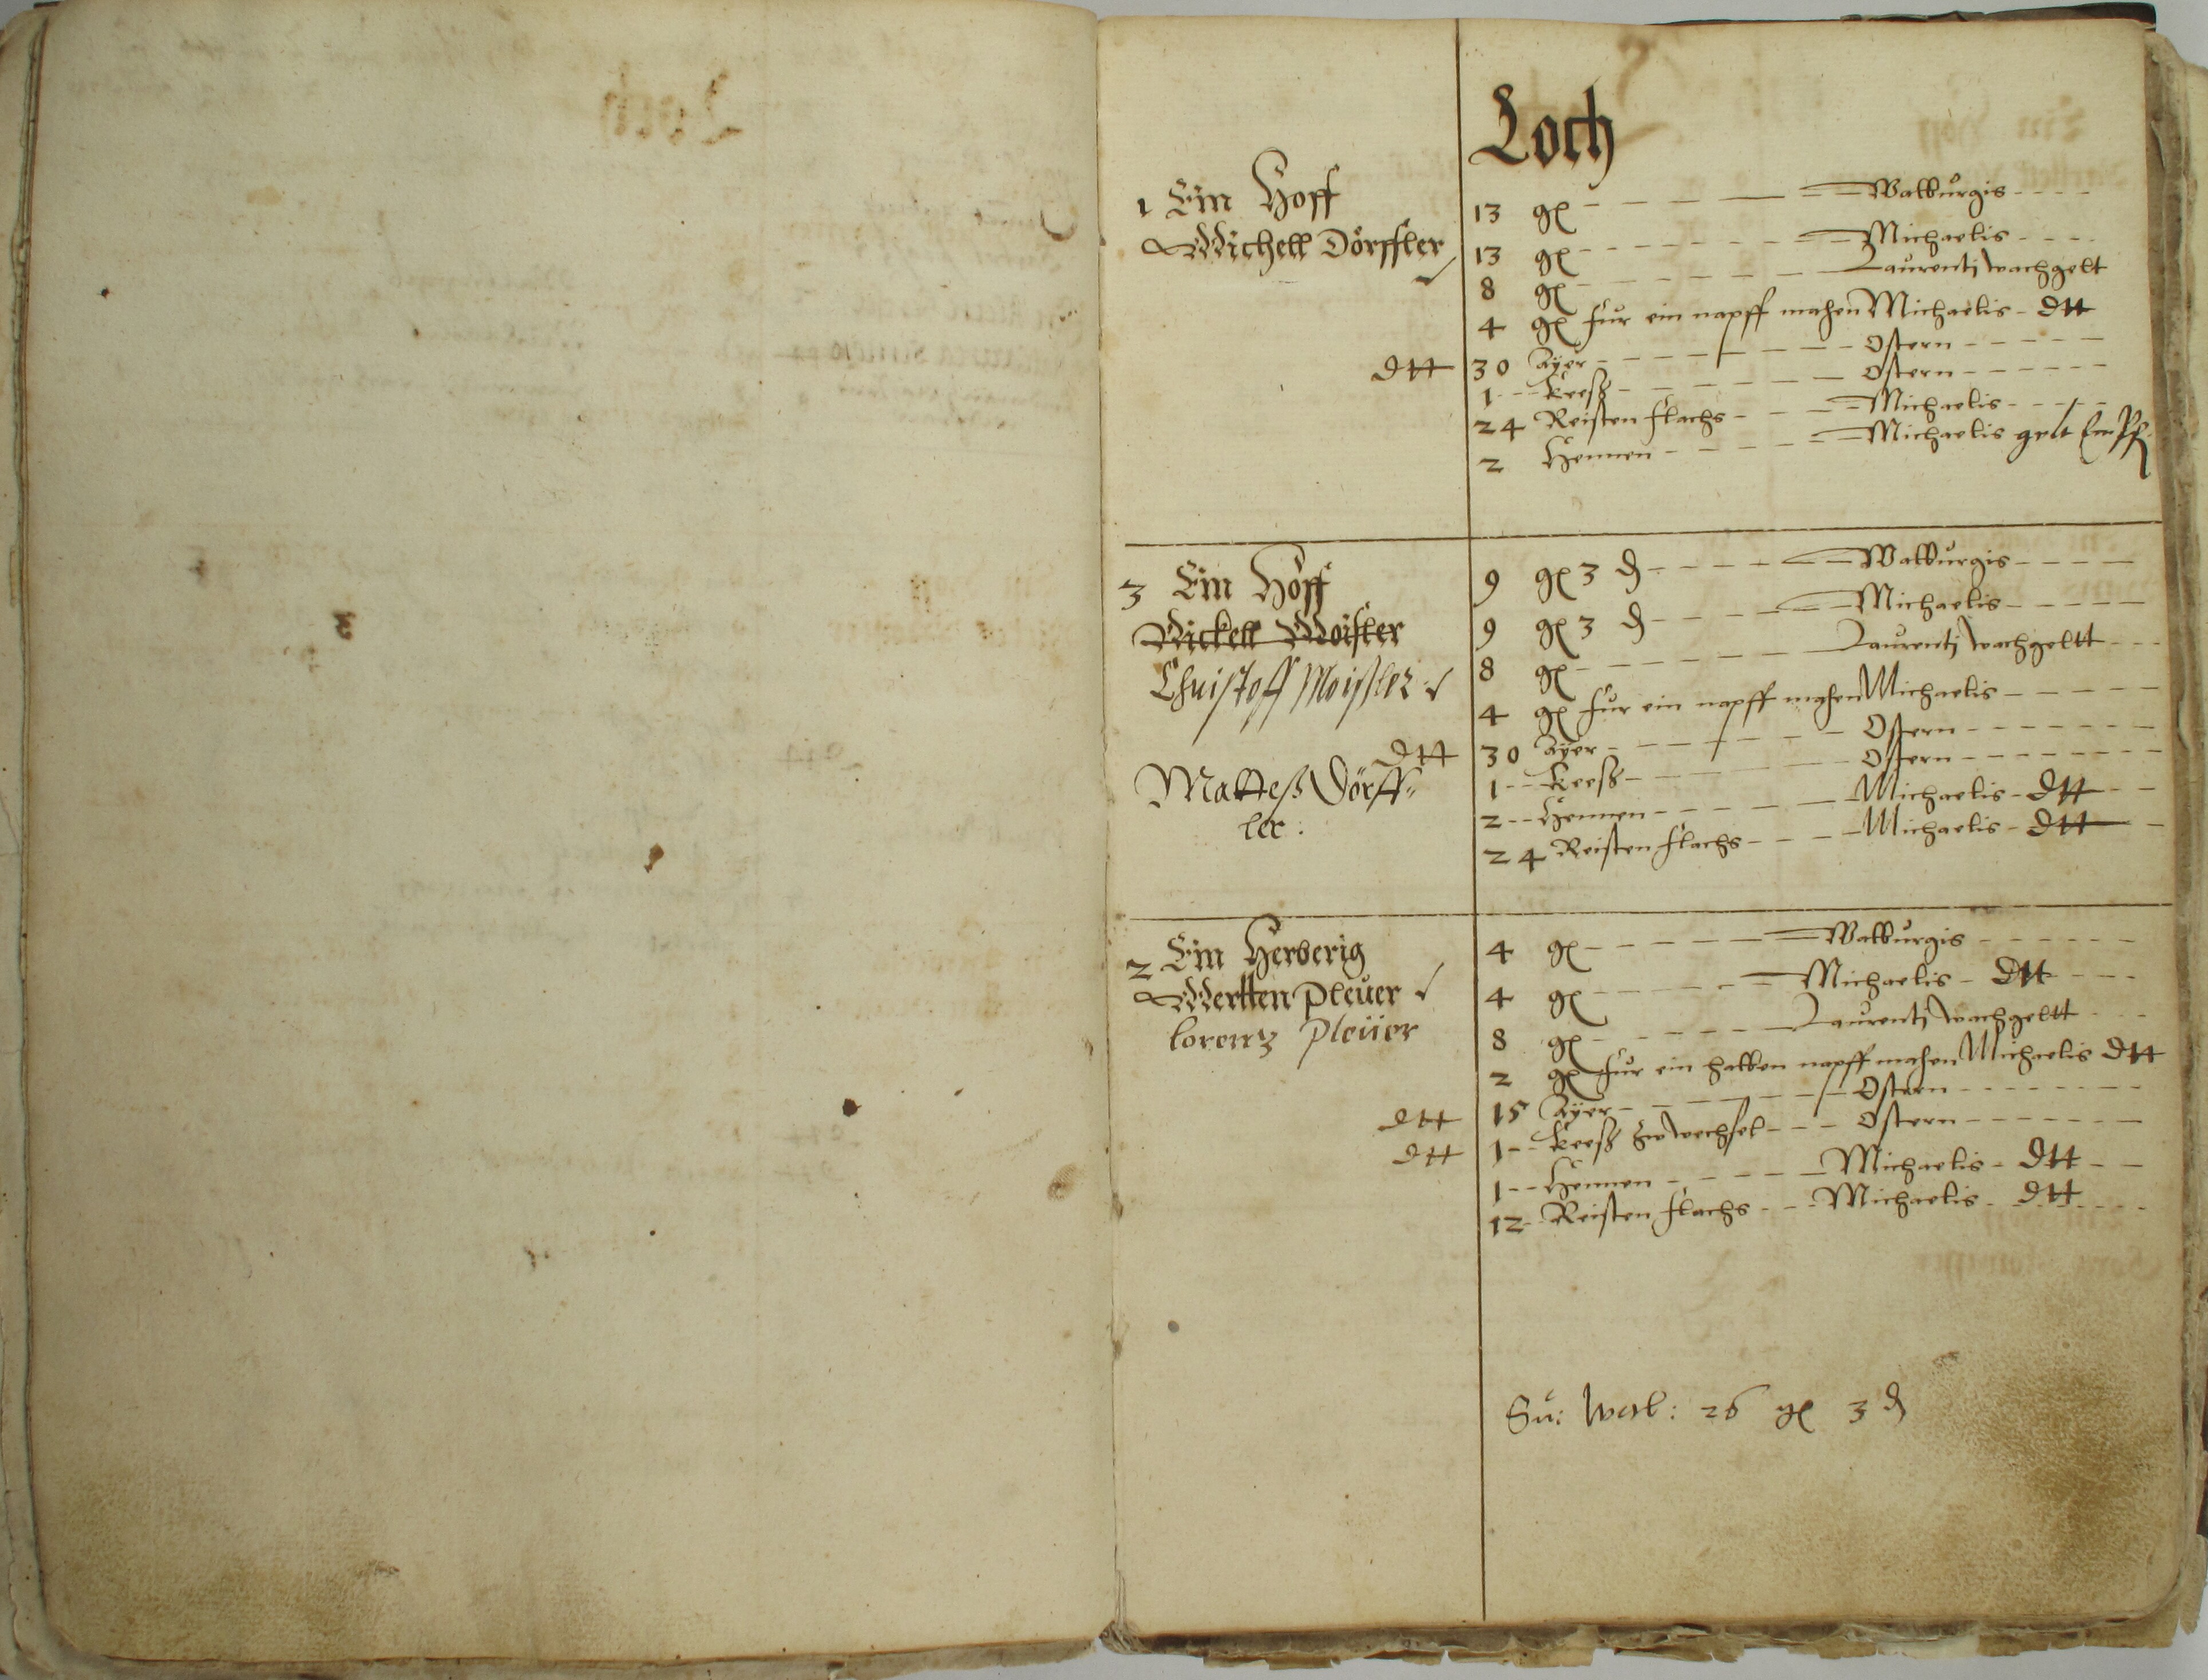 Loch
1 Ein Hoff
Michell Dörffler
13 gl Walburgis
13 gl Michaelis
8 gl Laurentj wachgelt
4 gl fur ein napff mahen Michaelis dtt
dtt 30 Ayer Ostern
1 Keeß Ostern
24 Reisten flachs Michaelis
2 Hennen Michaelis gelt
3 Ein Hoff
Nickell Moisler
Christoff Moisler
Matteß Dörff„
ler:
9 gl 3 d Walburgis
9 gl 3 d Michaelis
8 gl Laurentj wachgeltt
4 gl fur ein napff mahen Michaelis
dtt 30 Ayer Ostern
1 Keeß Ostern
2 Hennen Michaelis dtt
24 Reisten flachs Michaelis dtt
2 Ein Herberig
Mertten Pleüer
lorenz Pleüer
4 gl Walburgis
4 gl Michaelis dtt
8 gl Laurentj wachgeltt
2 gl fur ein halben napff mahen Michaelis dtt
dtt 15 Ayer Ostern
dtt 1 Keeß Zw wechsel Ostern
1 Hennen Michaelis dtt
12 Reisten flachs Michaelis dtt
Su: Wal: 26 gl 3 d